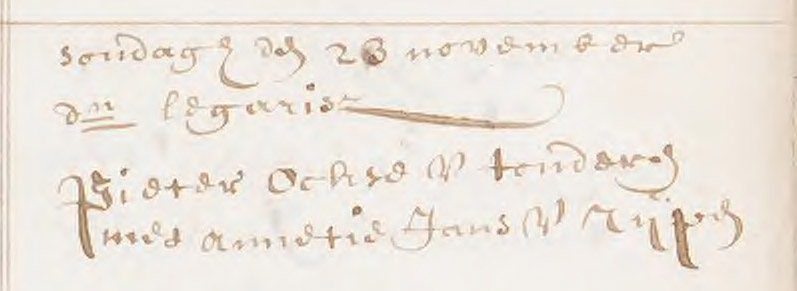 sondagh den 28 november
dn legarist
Pieter Ochse V tonderen
met annetie Jans V Rijpen